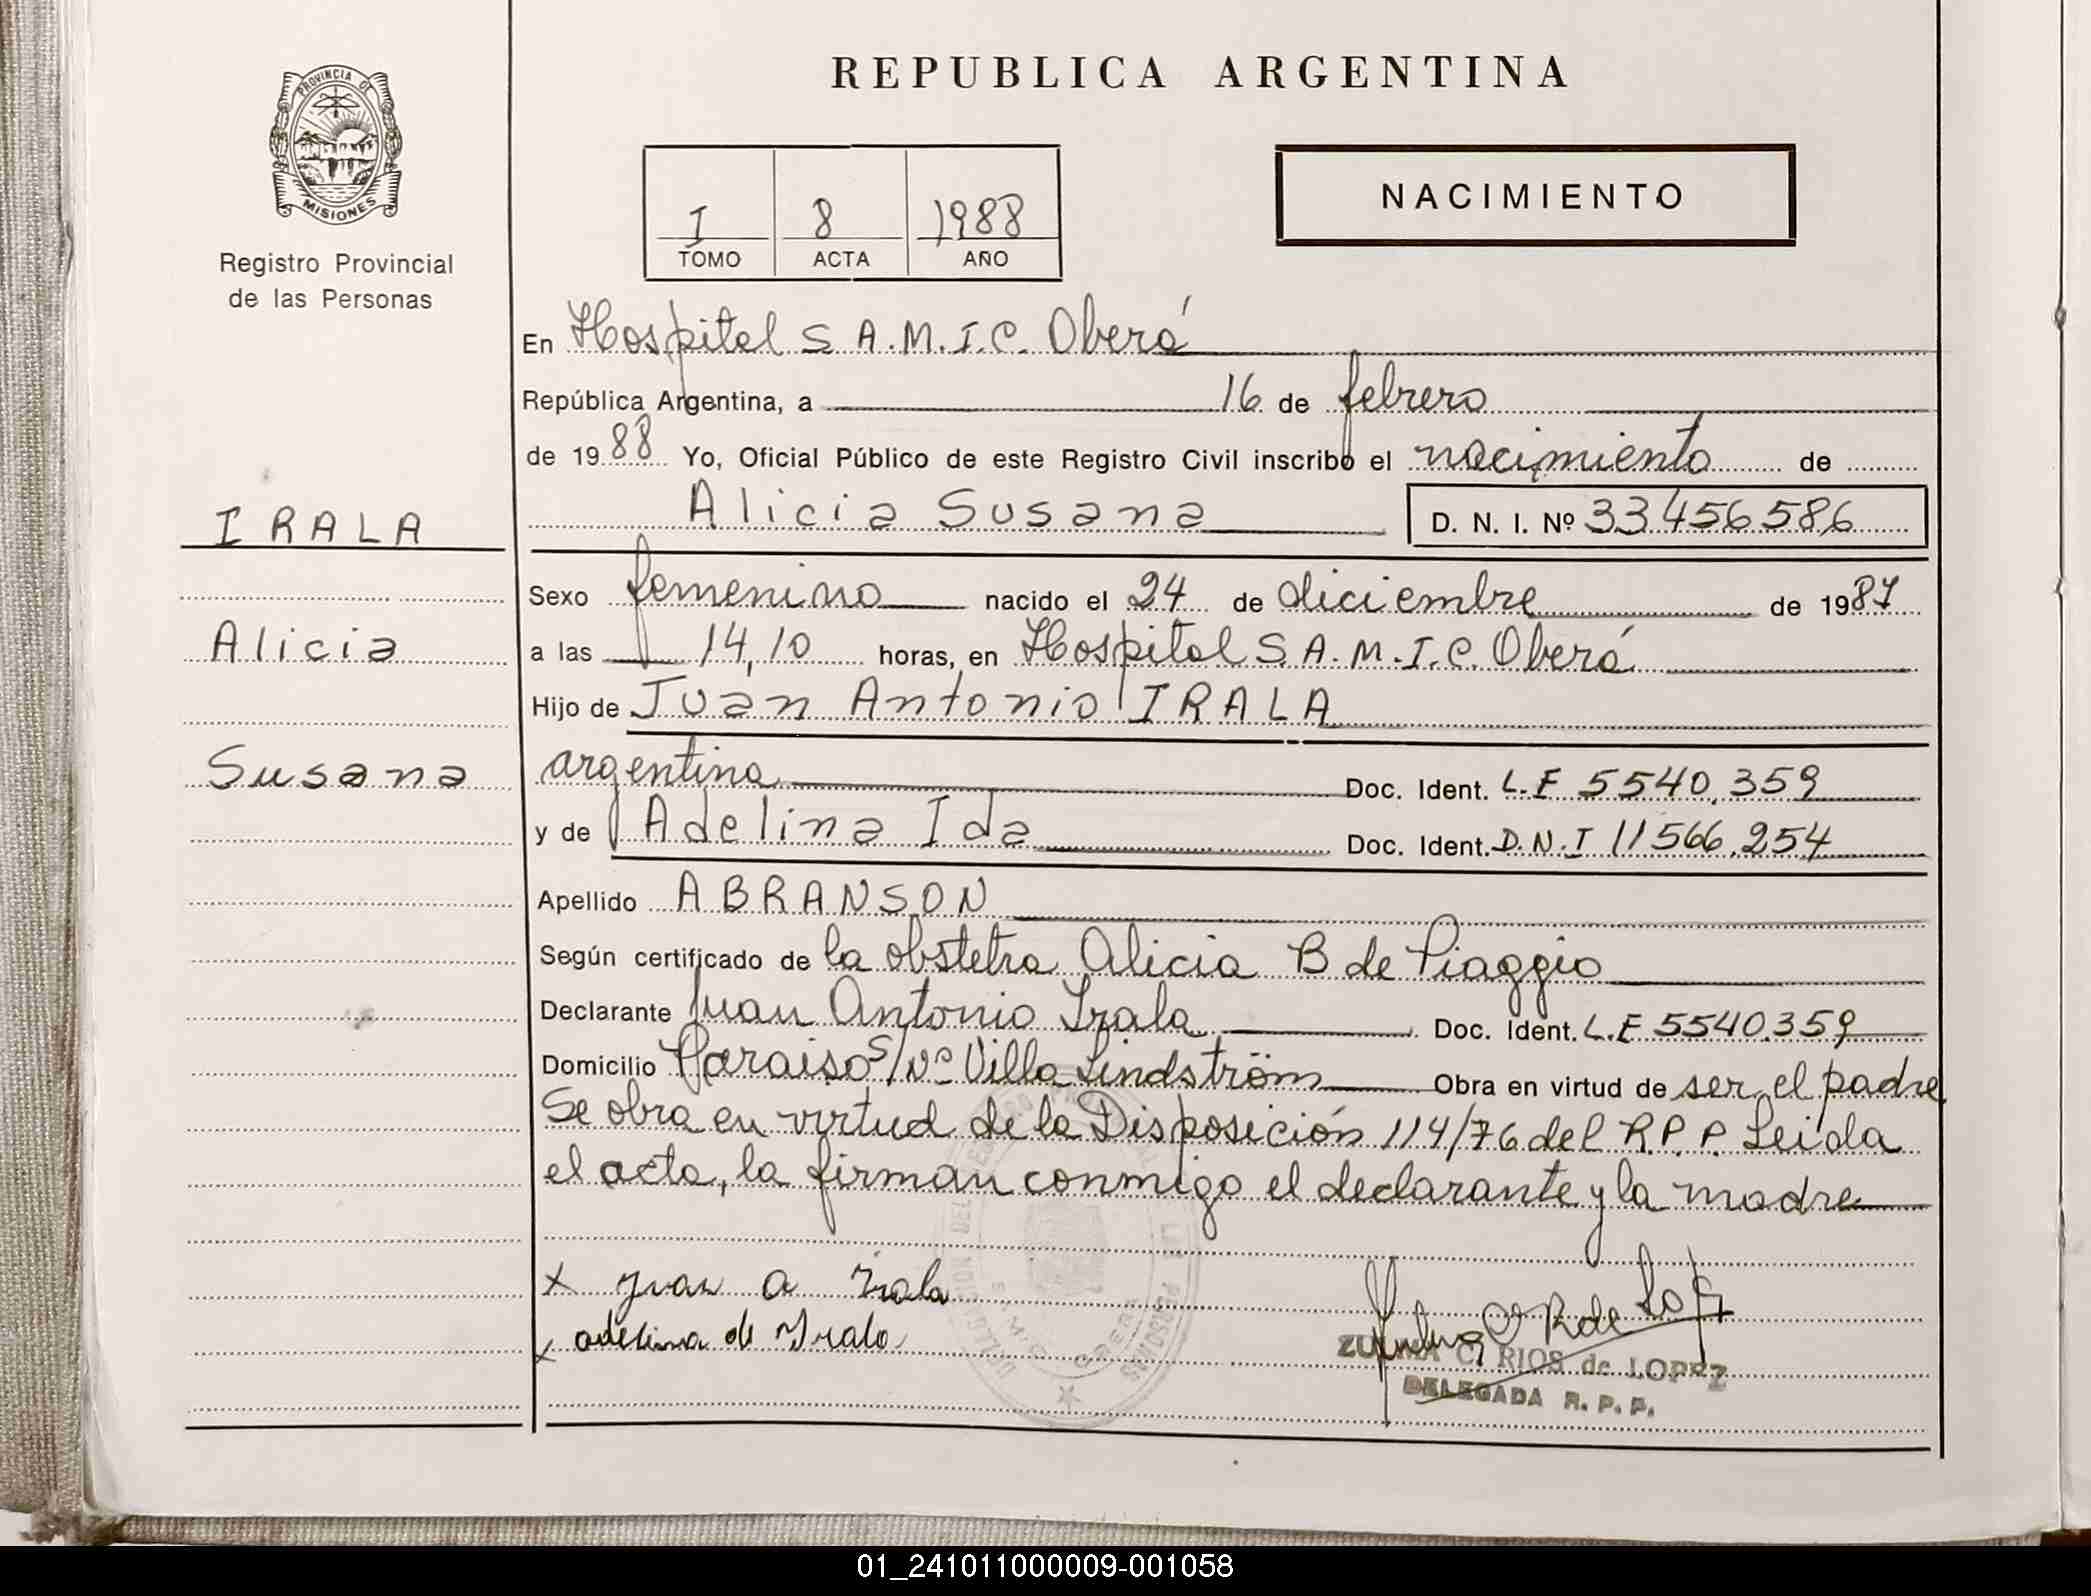 REPUBLICA ARGENTINA
PROVINCIA DE
MISIONES
Registro Provincial
de las Personas
NACIMIENTO
I 8 1988
TOMO ACTA AÑO
En Hospital S.A.M.I.C. Oberá
República Argentina, a 16 de febrero
de 1988 Yo, Oficial Público de este Registro Civil inscribo el nacimiento de
Alicia Susana D. N. I. Nº 33456586
IRALA
Alicia
Susana
Sexo femenino nacido el 24 de diciembre de 1987
a las 14,10 horas, en Hospital S.A.M.I.C. Oberá
Hijo de Juan Antonio IRALA
argentina Doc. Ident. L.E 5540.359
y de Adelina Ida Doc. Ident. D.N.I 11566.254
Apellido ABRANSON
Según certificado de la obstetra Alicia B de Piaggio
Declarante Juan Antonio Irala Doc. Ident. L.E 5540.359
Domicilio Paraiso S/Nº Villa Lindström Obra en virtud de ser el padre.
Se obra en virtud de la Disposición 114/76 del R.P.P. Leída
el acta, la firman conmigo el declarante y la madre
x Juan A Irala
x adelina de Irala
ZULMA C. RIOS de LOPEZ
DELEGADA R. P. P.
01_241011000009-001058